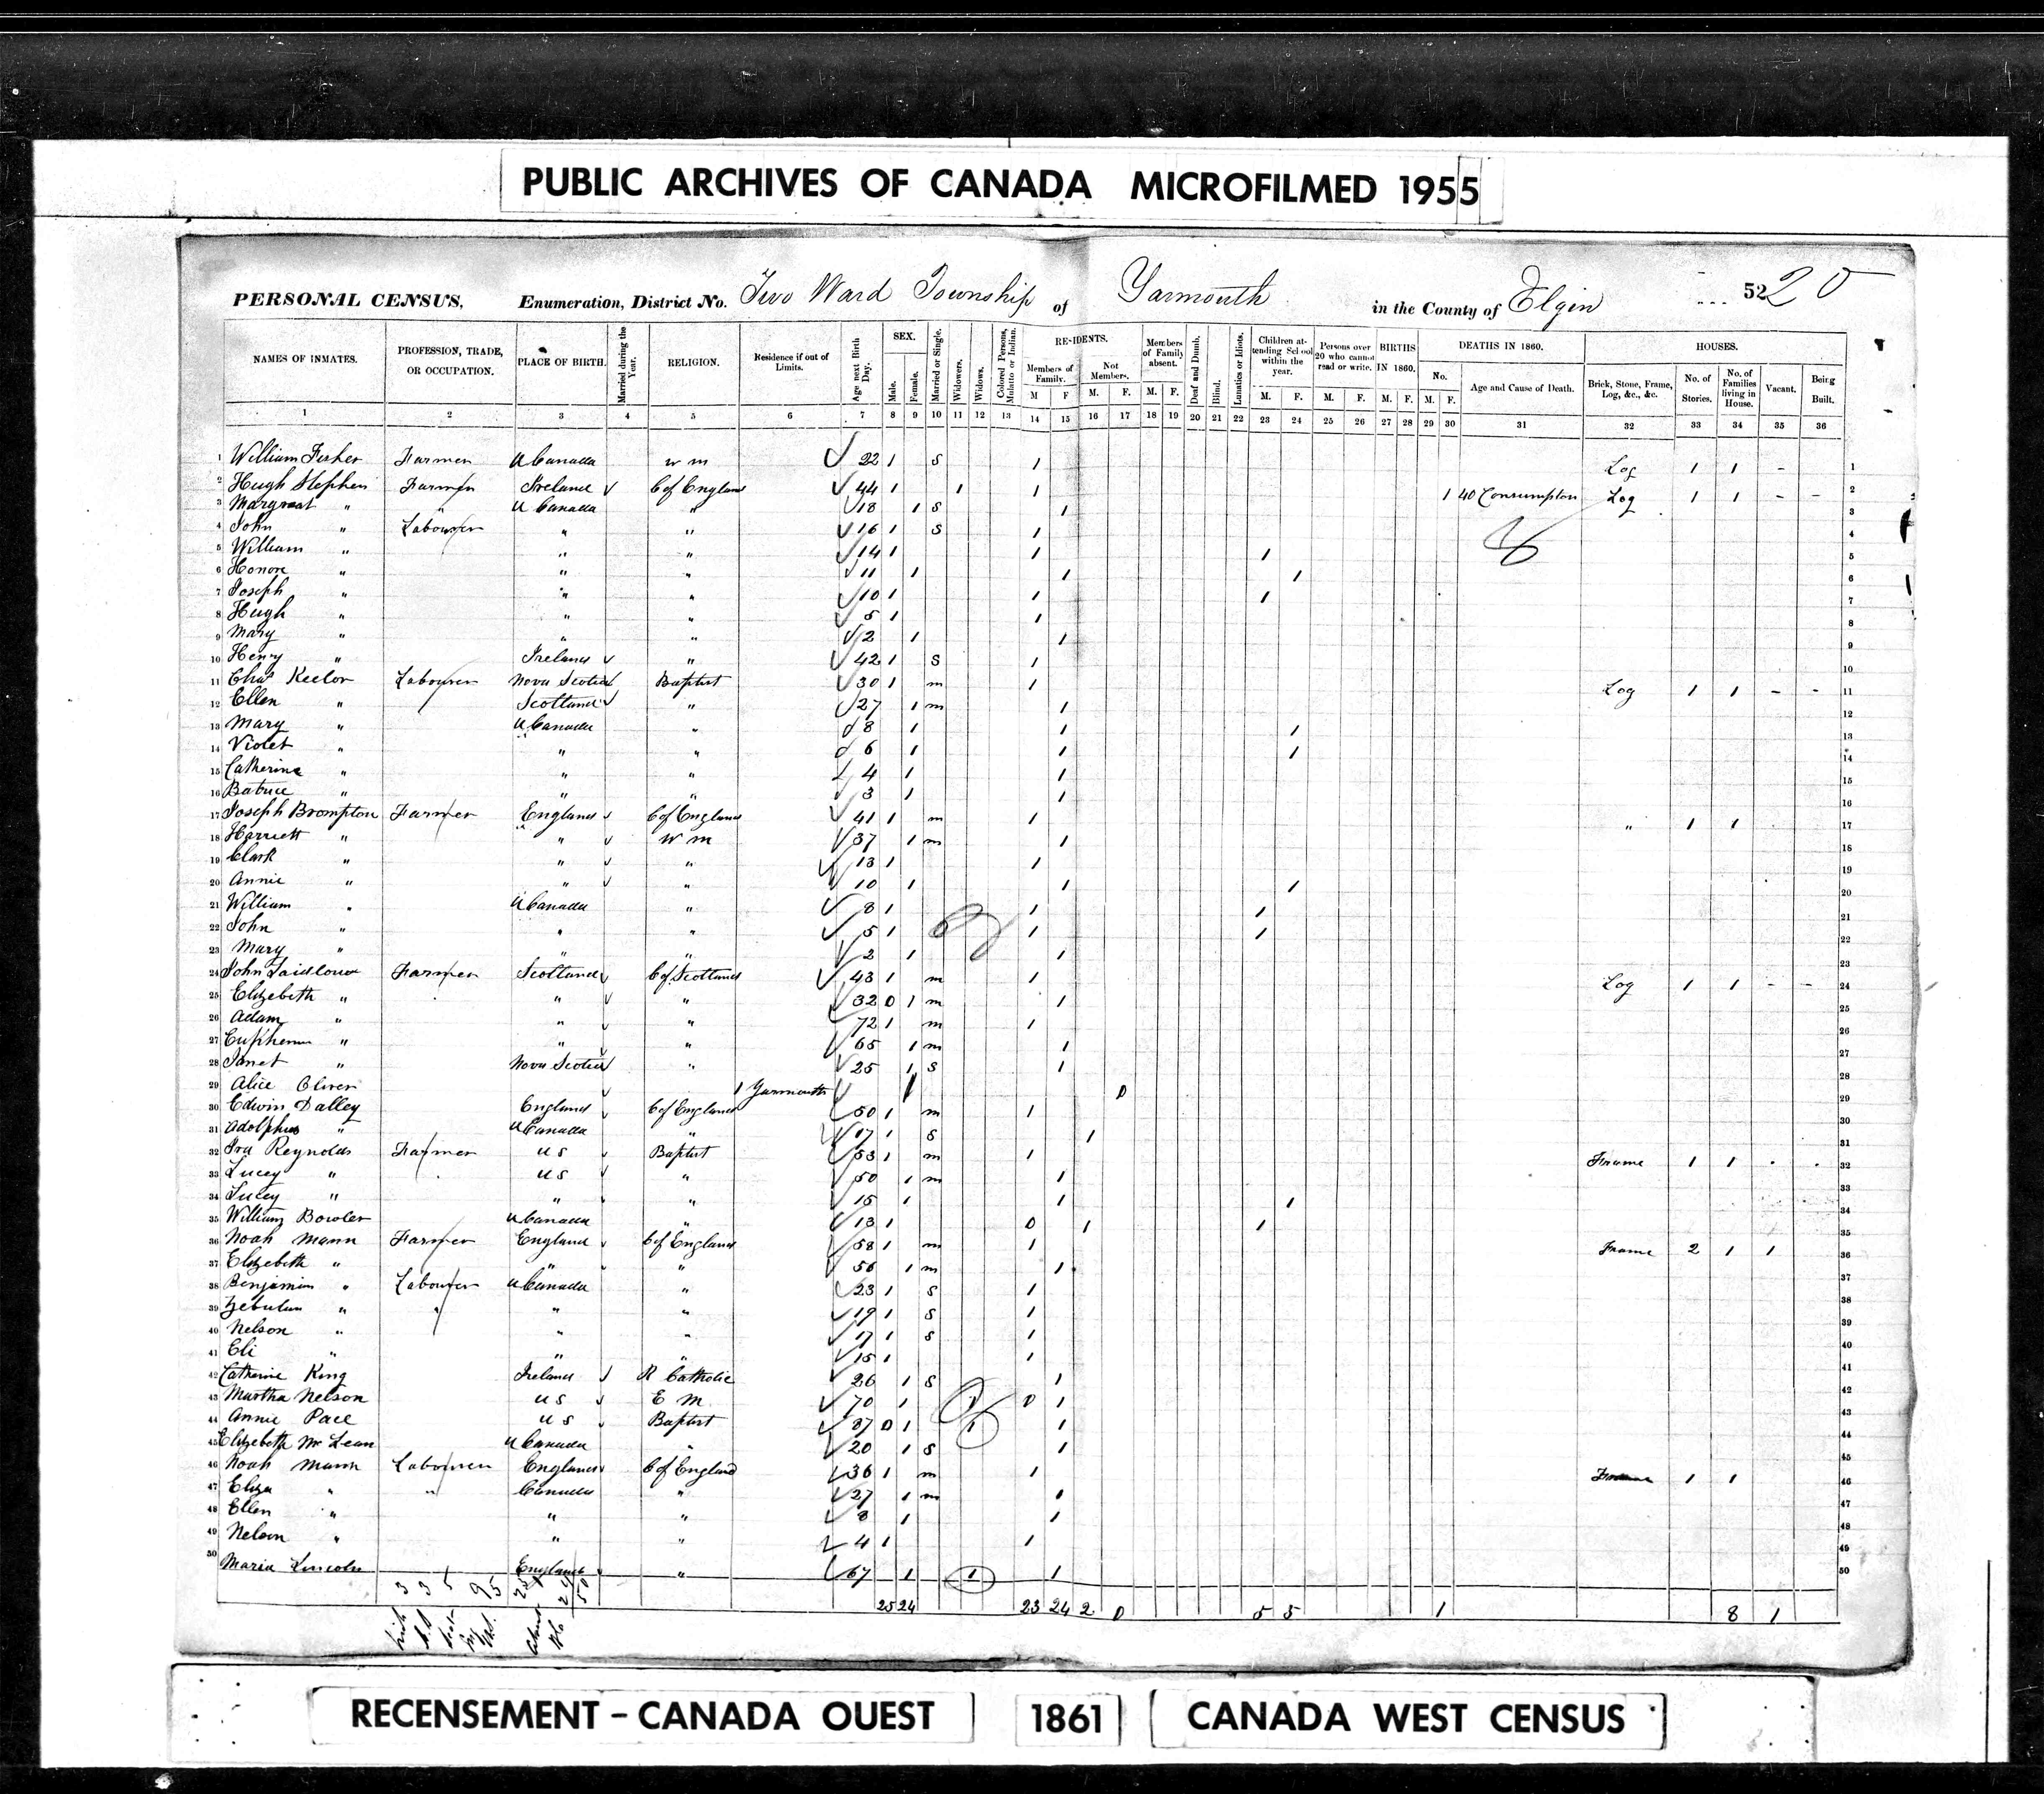 PUBLIC ARCHIVES OF CANADA MICROFILMED 1955
PERSONAL CENSUS, Enumeration, District No. Two Ward Township of Yarmouth in the County of Elgin 52 20
NAMES OF INMATES. PROFESSION, TRADE, OR OCCUPATION. PLACE OF BIRTH. Married during the Year. RELIGION. Residence if out of Limits. Age next Birth Day. SEX. Male. Female. Married or Single. Widowers. Widows. Colored Persons, Mulatto or Indian. RESIDENTS. Members of Family. M F Not Members. M. F. Members of Family absent. M. F. Deaf and Dumb. Blind. Lunatics or Idiots. Children attending School within the year. M. F. Persons over 20 who cannot read or write. M. F. BIRTHS IN 1860. M. F. DEATHS IN 1860. No. M. F. Age and Cause of Death. HOUSES. Brick, Stone, Frame, Log, &c., &c. No. of Stories. No. of Families living in House. Vacant. Being Built.
1 2 3 4 5 6 7 8 9 10 11 12 13 14 15 16 17 18 19 20 21 22 23 24 25 26 27 28 29 30 31 32 33 34 35 36
1 William Fisher Farmer U Canada w m 22 1 S 1 Log 1 1 - 1
2 Hugh Stephen Farmer Ireland C of England 44 1 1 1 1 40 Consumpton Log 1 1 - - 2
3 Margreat " " U Canada " 18 1 S 1 3
4 John " Labourer " " 16 1 S 1 4
5 William " " " 14 1 1 1 5
6 Honore " " " 11 1 1 1 6
7 Joseph " " " 10 1 1 1 7
8 Hugh " " " 5 1 1 8
9 Mary " " " 2 1 1 9
10 Henry " Ireland " 42 1 S 1 10
11 Chas Keelor Labourer Nova Scotia Baptist 30 1 m 1 Log 1 1 - - 11
12 Ellen " Scotland " 27 1 m 1 12
13 Mary " U Canada " 8 1 1 1 13
14 Violet " " " 6 1 1 1 14
15 Catherine " " " 4 1 1 15
16 Batrice " " " 3 1 1 16
17 Joseph Brompton Farmer England C of England 41 1 m 1 " 1 1 17
18 Harriett " " W m 37 1 m 1 18
19 Clark " " " 13 1 1 19
20 Annie " " " 10 1 1 1 20
21 William " U Canada " 8 1 1 1 21
22 John " " " 5 1 1 1 22
23 Mary " " " 2 1 1 23
24 John Laidlow Farmer Scotland C of Scotland 43 1 m 1 Log 1 1 - - 24
25 Elizebeth " " " 32 0 1 m 1 25
26 Adam " " " 72 1 m 1 26
27 Euphemia " " " 65 1 m 1 27
28 Janet " Nova Scotia " 25 1 S 1 28
29 Alice Oliver 1 Yarmouth 1 0 29
30 Edwin Dalley England C of England 50 1 m 1 30
31 Adolphus " U Canada " 17 1 S 1 31
32 Ira Reynolds Farmer U S Baptist 53 1 m 1 Frame 1 1 - - 32
33 Lucey " U S " 50 1 m 1 33
34 Lucey " " " 15 1 1 1 34
35 William Bowler U Canada " 13 1 0 1 1 35
36 Noah Mann Farmer England C of England 58 1 m 1 Frame 2 1 1 36
37 Elizebeth " " " 56 1 m 1 37
38 Benjamin " Labourer U Canada " 23 1 S 1 38
39 Zebulun " " " " 19 1 S 1 39
40 Nelson " " " 17 1 S 1 40
41 Eli " " " 15 1 1 41
42 Catherine King Ireland R Catholic 26 1 S 1 42
43 Martha Nelson U S E M 70 1 1 0 1 43
44 Annie Pace U S Baptist 87 0 1 1 1 44
45 Elizebeth McLean U Canada " 20 1 S 1 45
46 Noah Mann Labourer England C of England 36 1 m 1 Frame 1 1 46
47 Eliza " " Canada " 27 1 m 1 47
48 Ellen " " " 8 1 1 48
49 Nelson " " " 4 1 1 49
50 Maria Lincoln England " 67 1 1 1 50
3 3 5 9 5
25 24 23 24 2 0 5 5 1 8 1
RECENSEMENT - CANADA OUEST 1861 CANADA WEST CENSUS